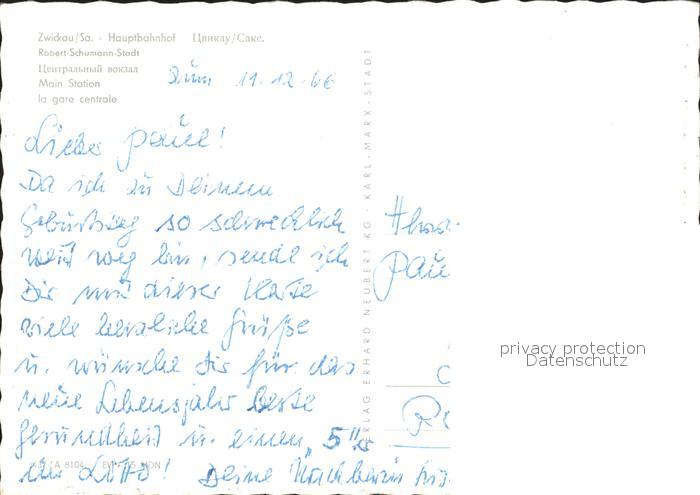 Zwickau/Sa. - Hauptbahnhof Цвикау/Сакс.
Robert-Schumann-Stadt
Центральный вокзал
Main Station
la gare centrale
11.12.66
Lieber Paul!
Da ich zu Deinem
Geburtstag so schrecklich
weit weg bin, sende ich
Dir mit dieser Karte
viele herzliche Grüße
u. wünsche Dir für das
neue Lebensjahr beste
Gesundheit u. einen „5"er
im Lotto! Deine Nachbarin
VERLAG ERHARD NEUBERT KG · KARL-MARX-STADT
Pau
privacy protection
Datenschutz
A 8104